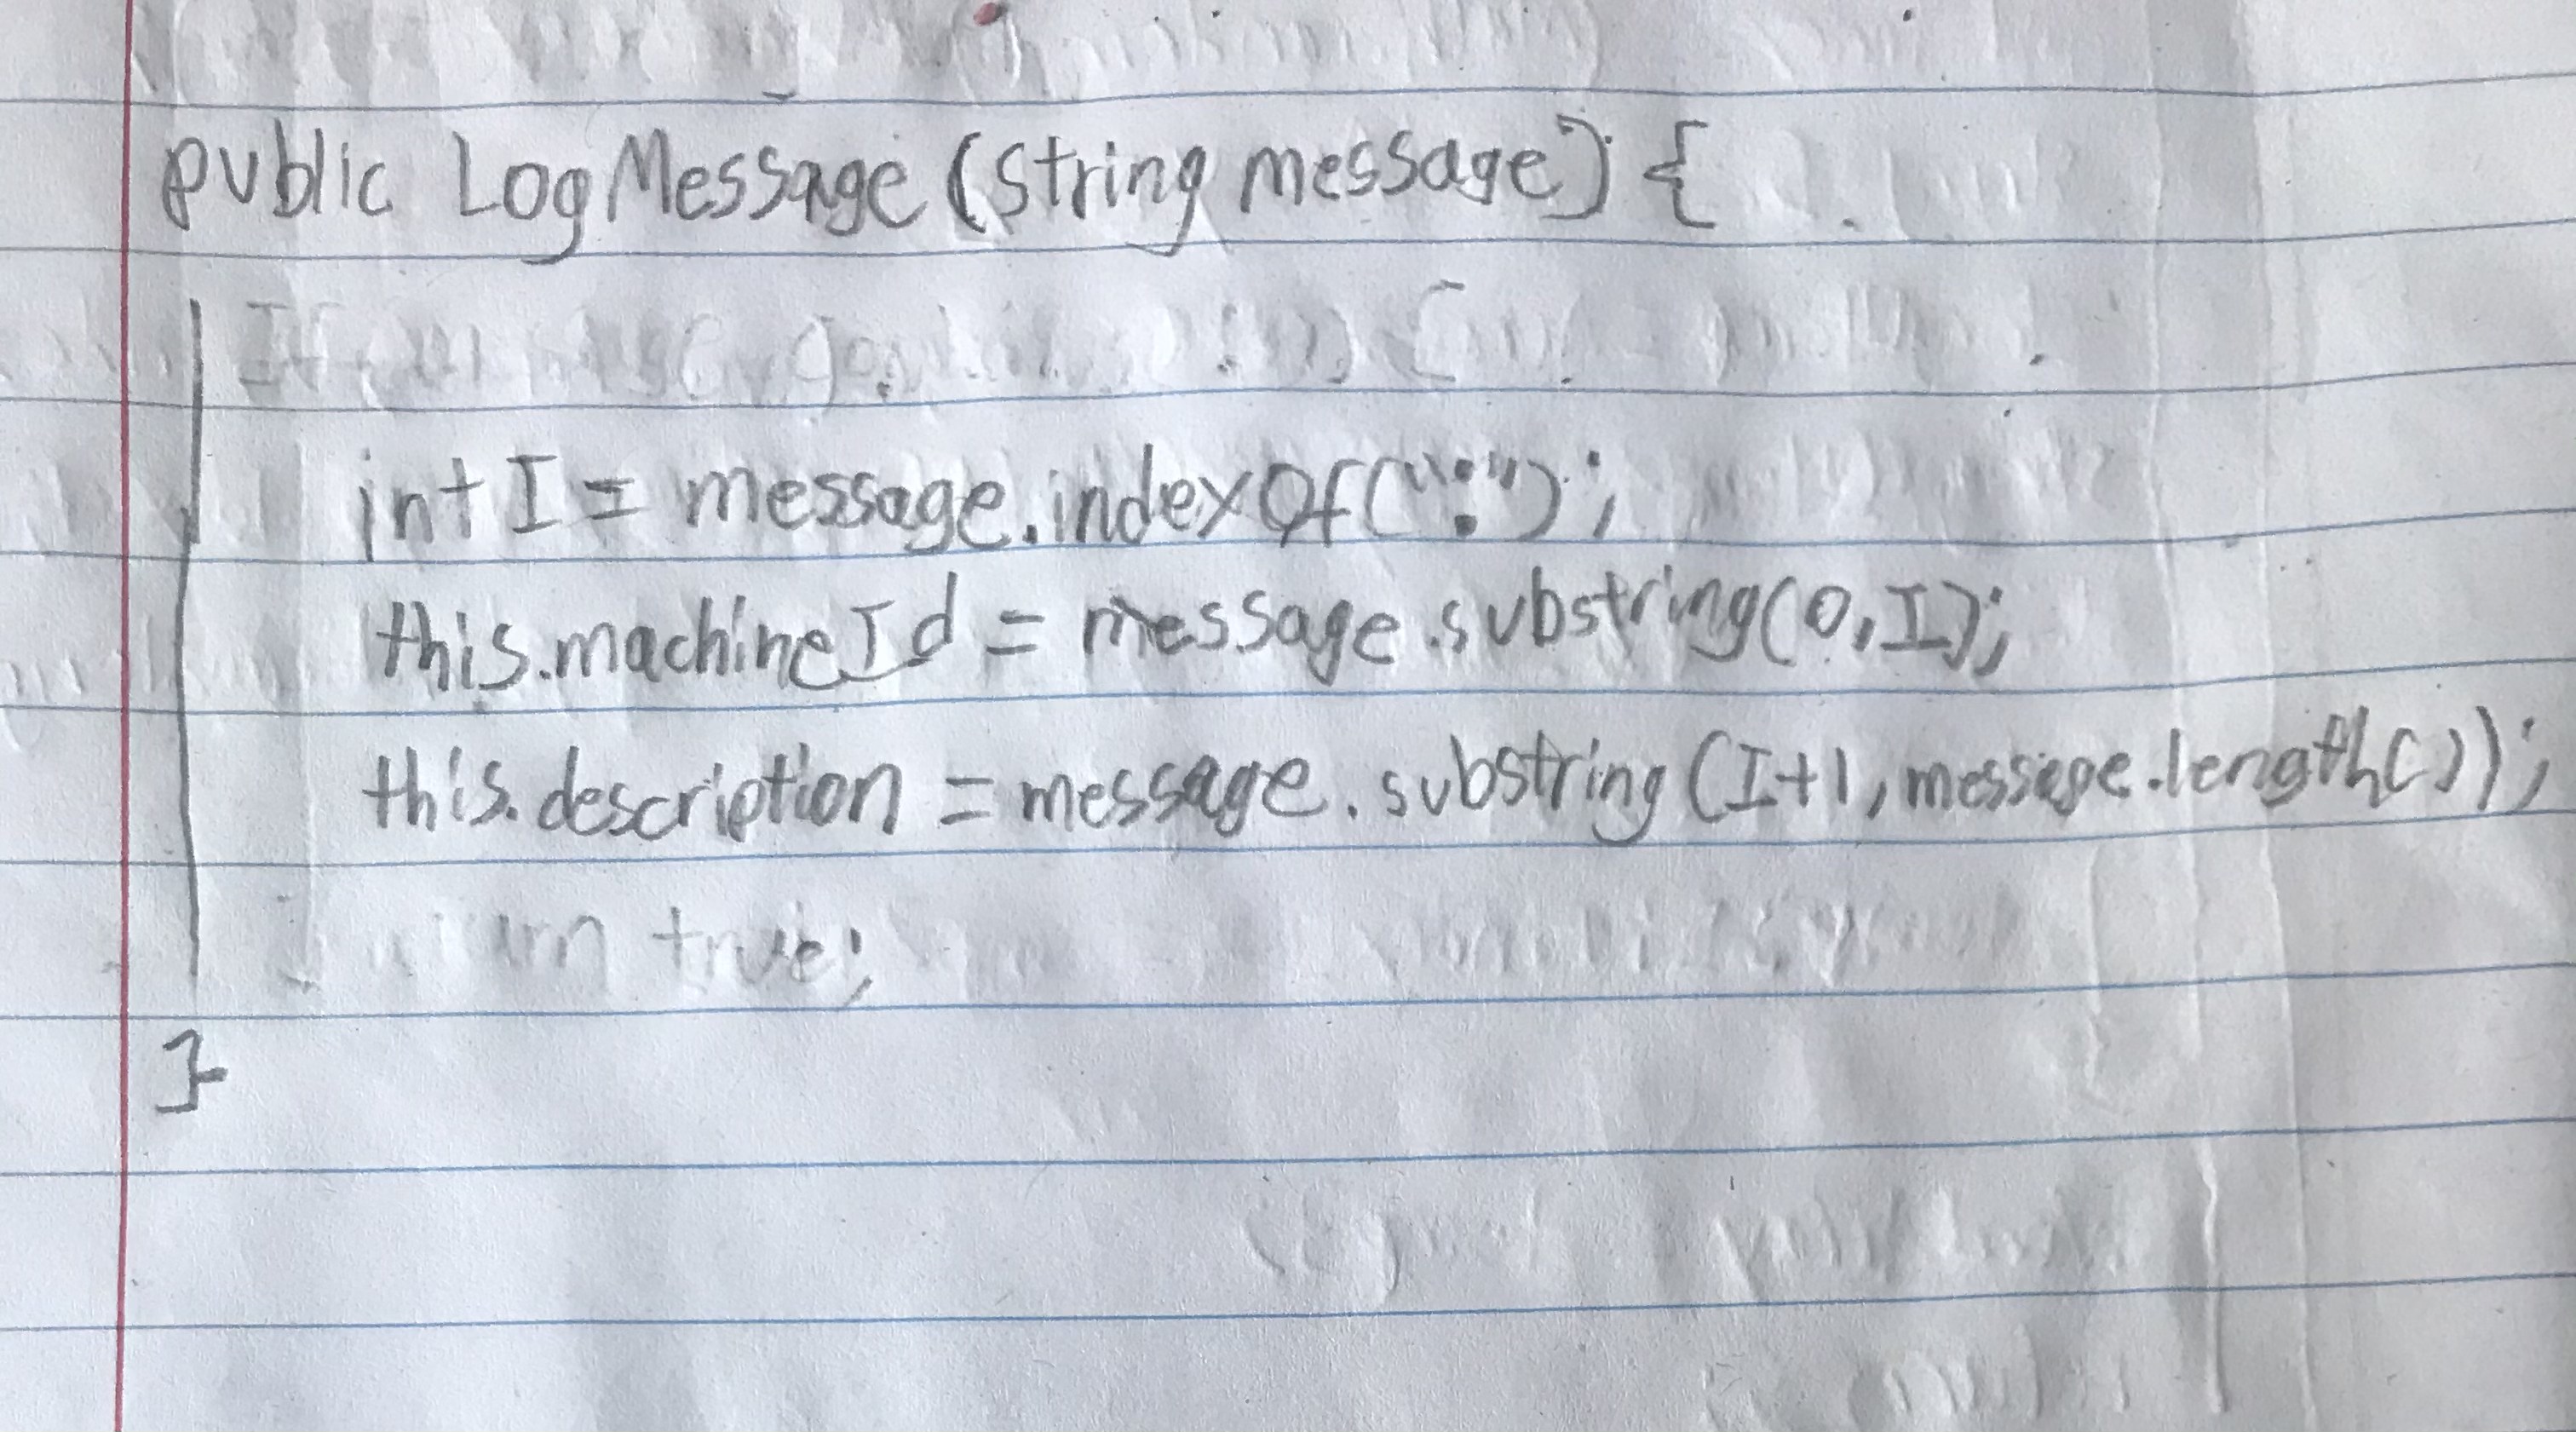 public LogMessage (String message) {
int I = message.indexOf(":");
this.machineId = message.substring(0,I);
this.description = message.substring (I+1, message.length());
true;
}